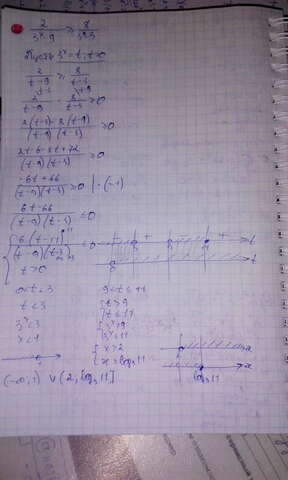 2/(3ˣ-9) ≥ 8/(3ˣ-3)
Пусть 3ˣ = t, t>0
2/(t-9) ≥ 8/(t-3)
2/(t-9) - 8/(t-3) ≥ 0
(2(t-3)-8(t-9))/((t-9)(t-3)) ≥ 0
(2t-6-8t+72)/((t-9)(t-3)) ≥ 0
(-6t+66)/((t-9)(t-3)) ≥ 0 | ·(-1)
(6t-66)/((t-9)(t-3)) ≤ 0
{ 6(t-11)/((t-9)(t-3)) ≤ 0 t
t>0 t
0<t<3 9<t≤11
t<3 { t>9
t≤11
3ˣ<3 { 3ˣ>9
3ˣ≤11
x<1 { x>2
x≤log₃11
x
log₃11 x
(-∞;1) ∪ (2; log₃11]